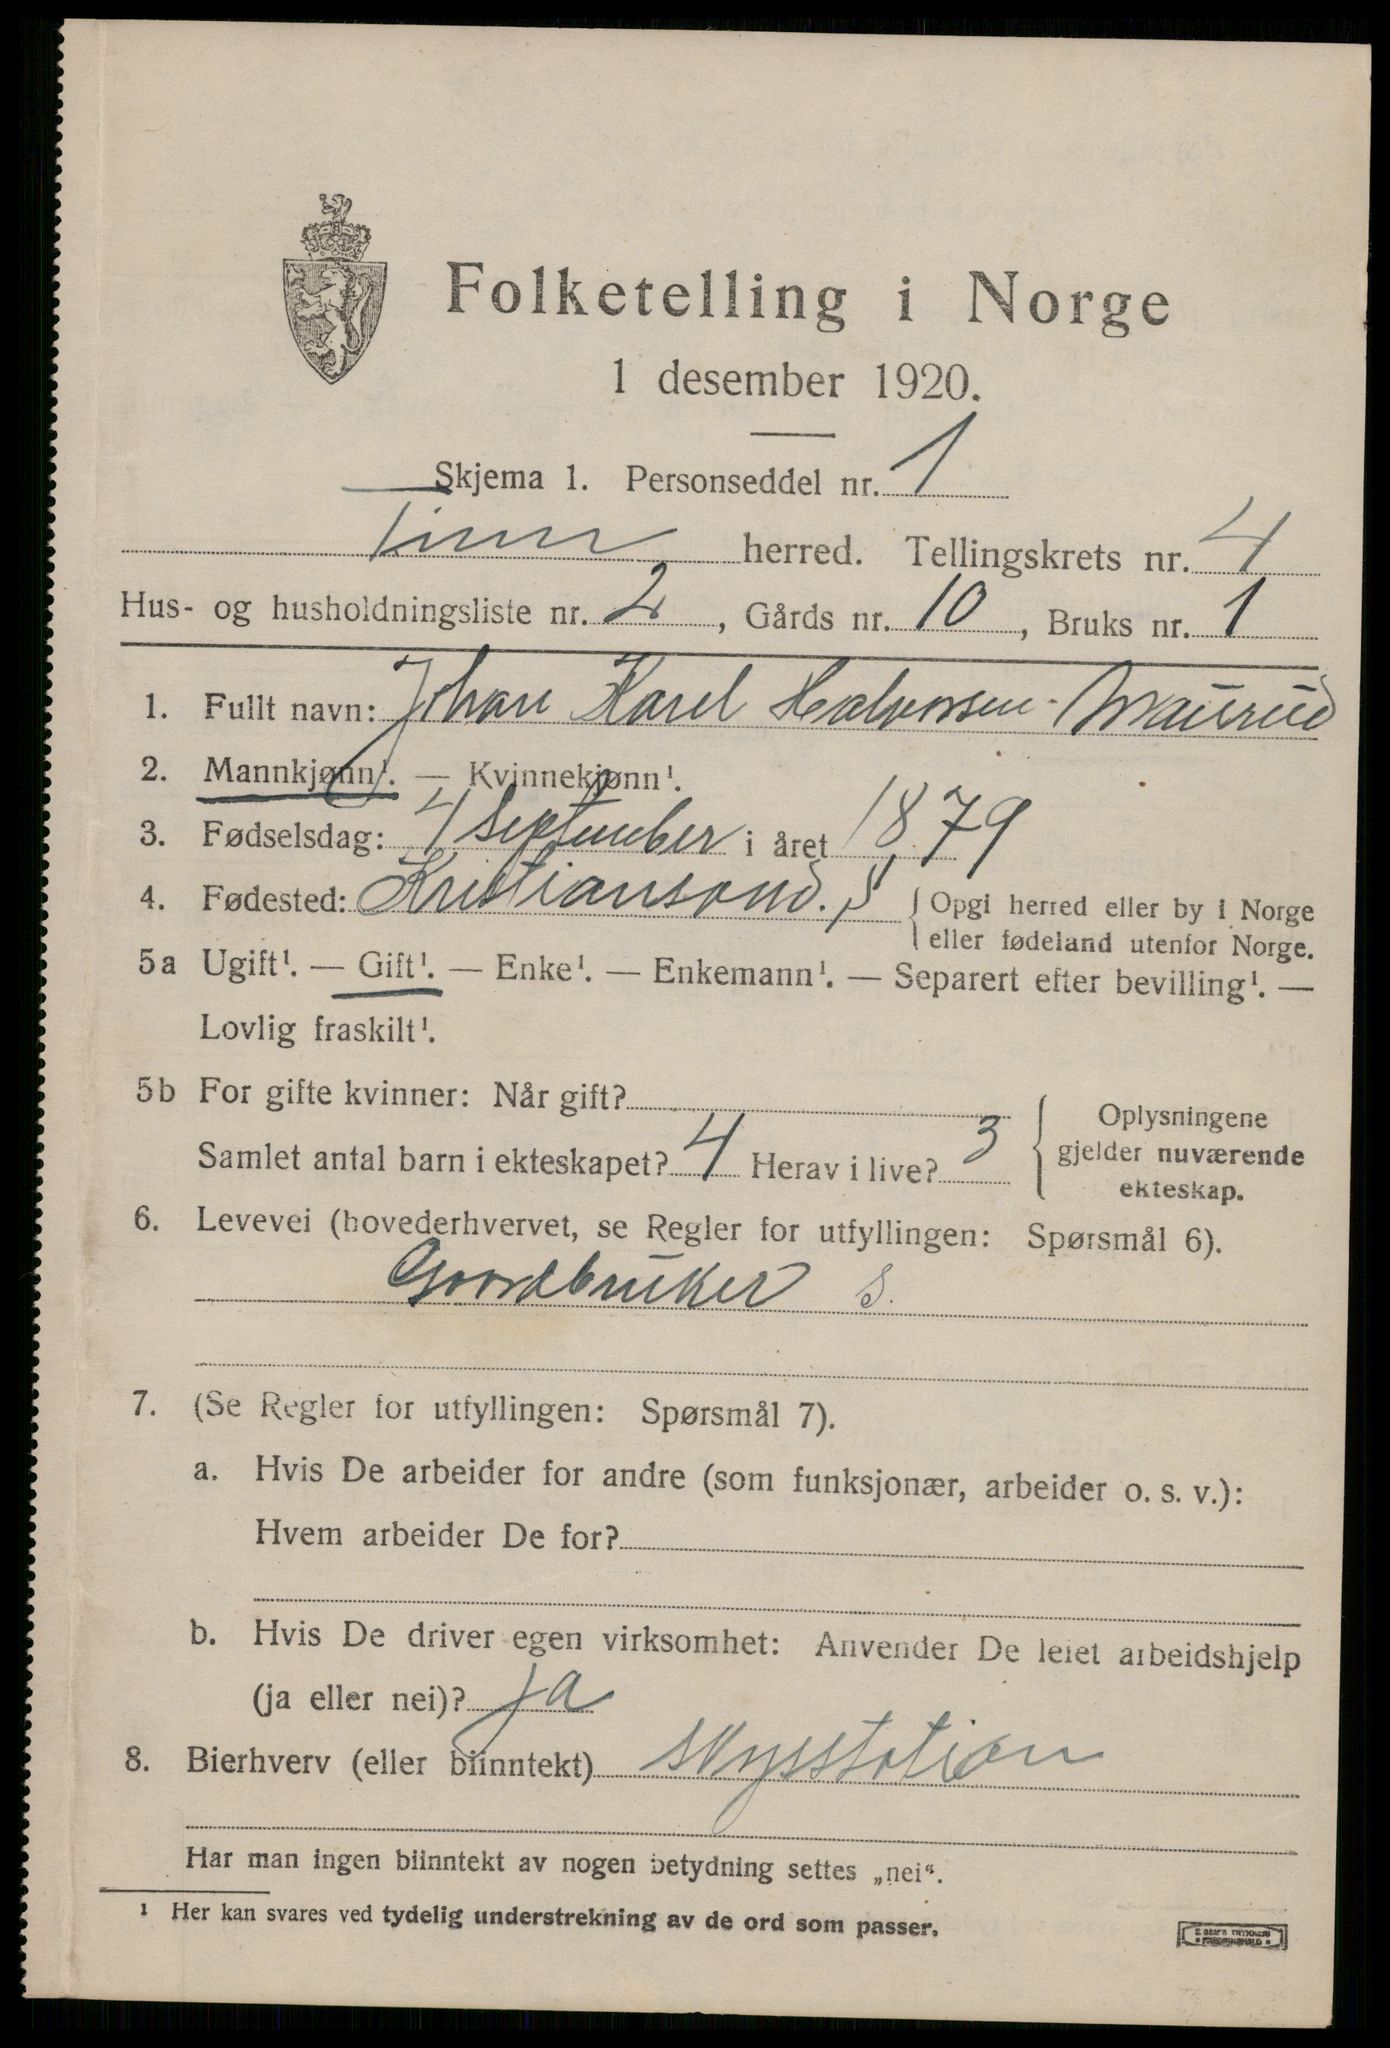 Folketelling i Norge
1 desember 1920.
Skjema 1. Personseddel nr. 1
Tinn herred. Tellingskrets nr. 4
Hus- og husholdningsliste nr. 2, Gårds nr. 10, Bruks nr. 1
1. Fullt navn: Johan Karel Halvorssen Maurud
2. Mannkjønn¹. — Kvinnekjønn¹.
3. Fødselsdag: 4 September i året 1879
4. Fødested: Kristiansand. S { Opgi herred eller by i Norge
eller fødeland utenfor Norge.
5a Ugift¹. — Gift¹. — Enke¹. — Enkemann¹. — Separert efter bevilling¹. —
Lovlig fraskilt¹.
5b For gifte kvinner: Når gift?
Samlet antal barn i ekteskapet? 4 Herav i live? 3
Oplysningene
gjelder nuværende
ekteskap.
6. Levevei (hovederhvervet, se Regler for utfyllingen: Spørsmål 6).
Gaardbruker S.
7. (Se Regler for utfyllingen: Spørsmål 7).
a. Hvis De arbeider for andre (som funksjonær, arbeider o. s. v.):
Hvem arbeider De for?
b. Hvis De driver egen virksomhet: Anvender De leiet arbeidshjelp
(ja eller nei)? ja
8. Bierhverv (eller biinntekt) skysstation
Har man ingen biinntekt av nogen betydning settes „nei“.
¹ Her kan svares ved tydelig understrekning av de ord som passer.